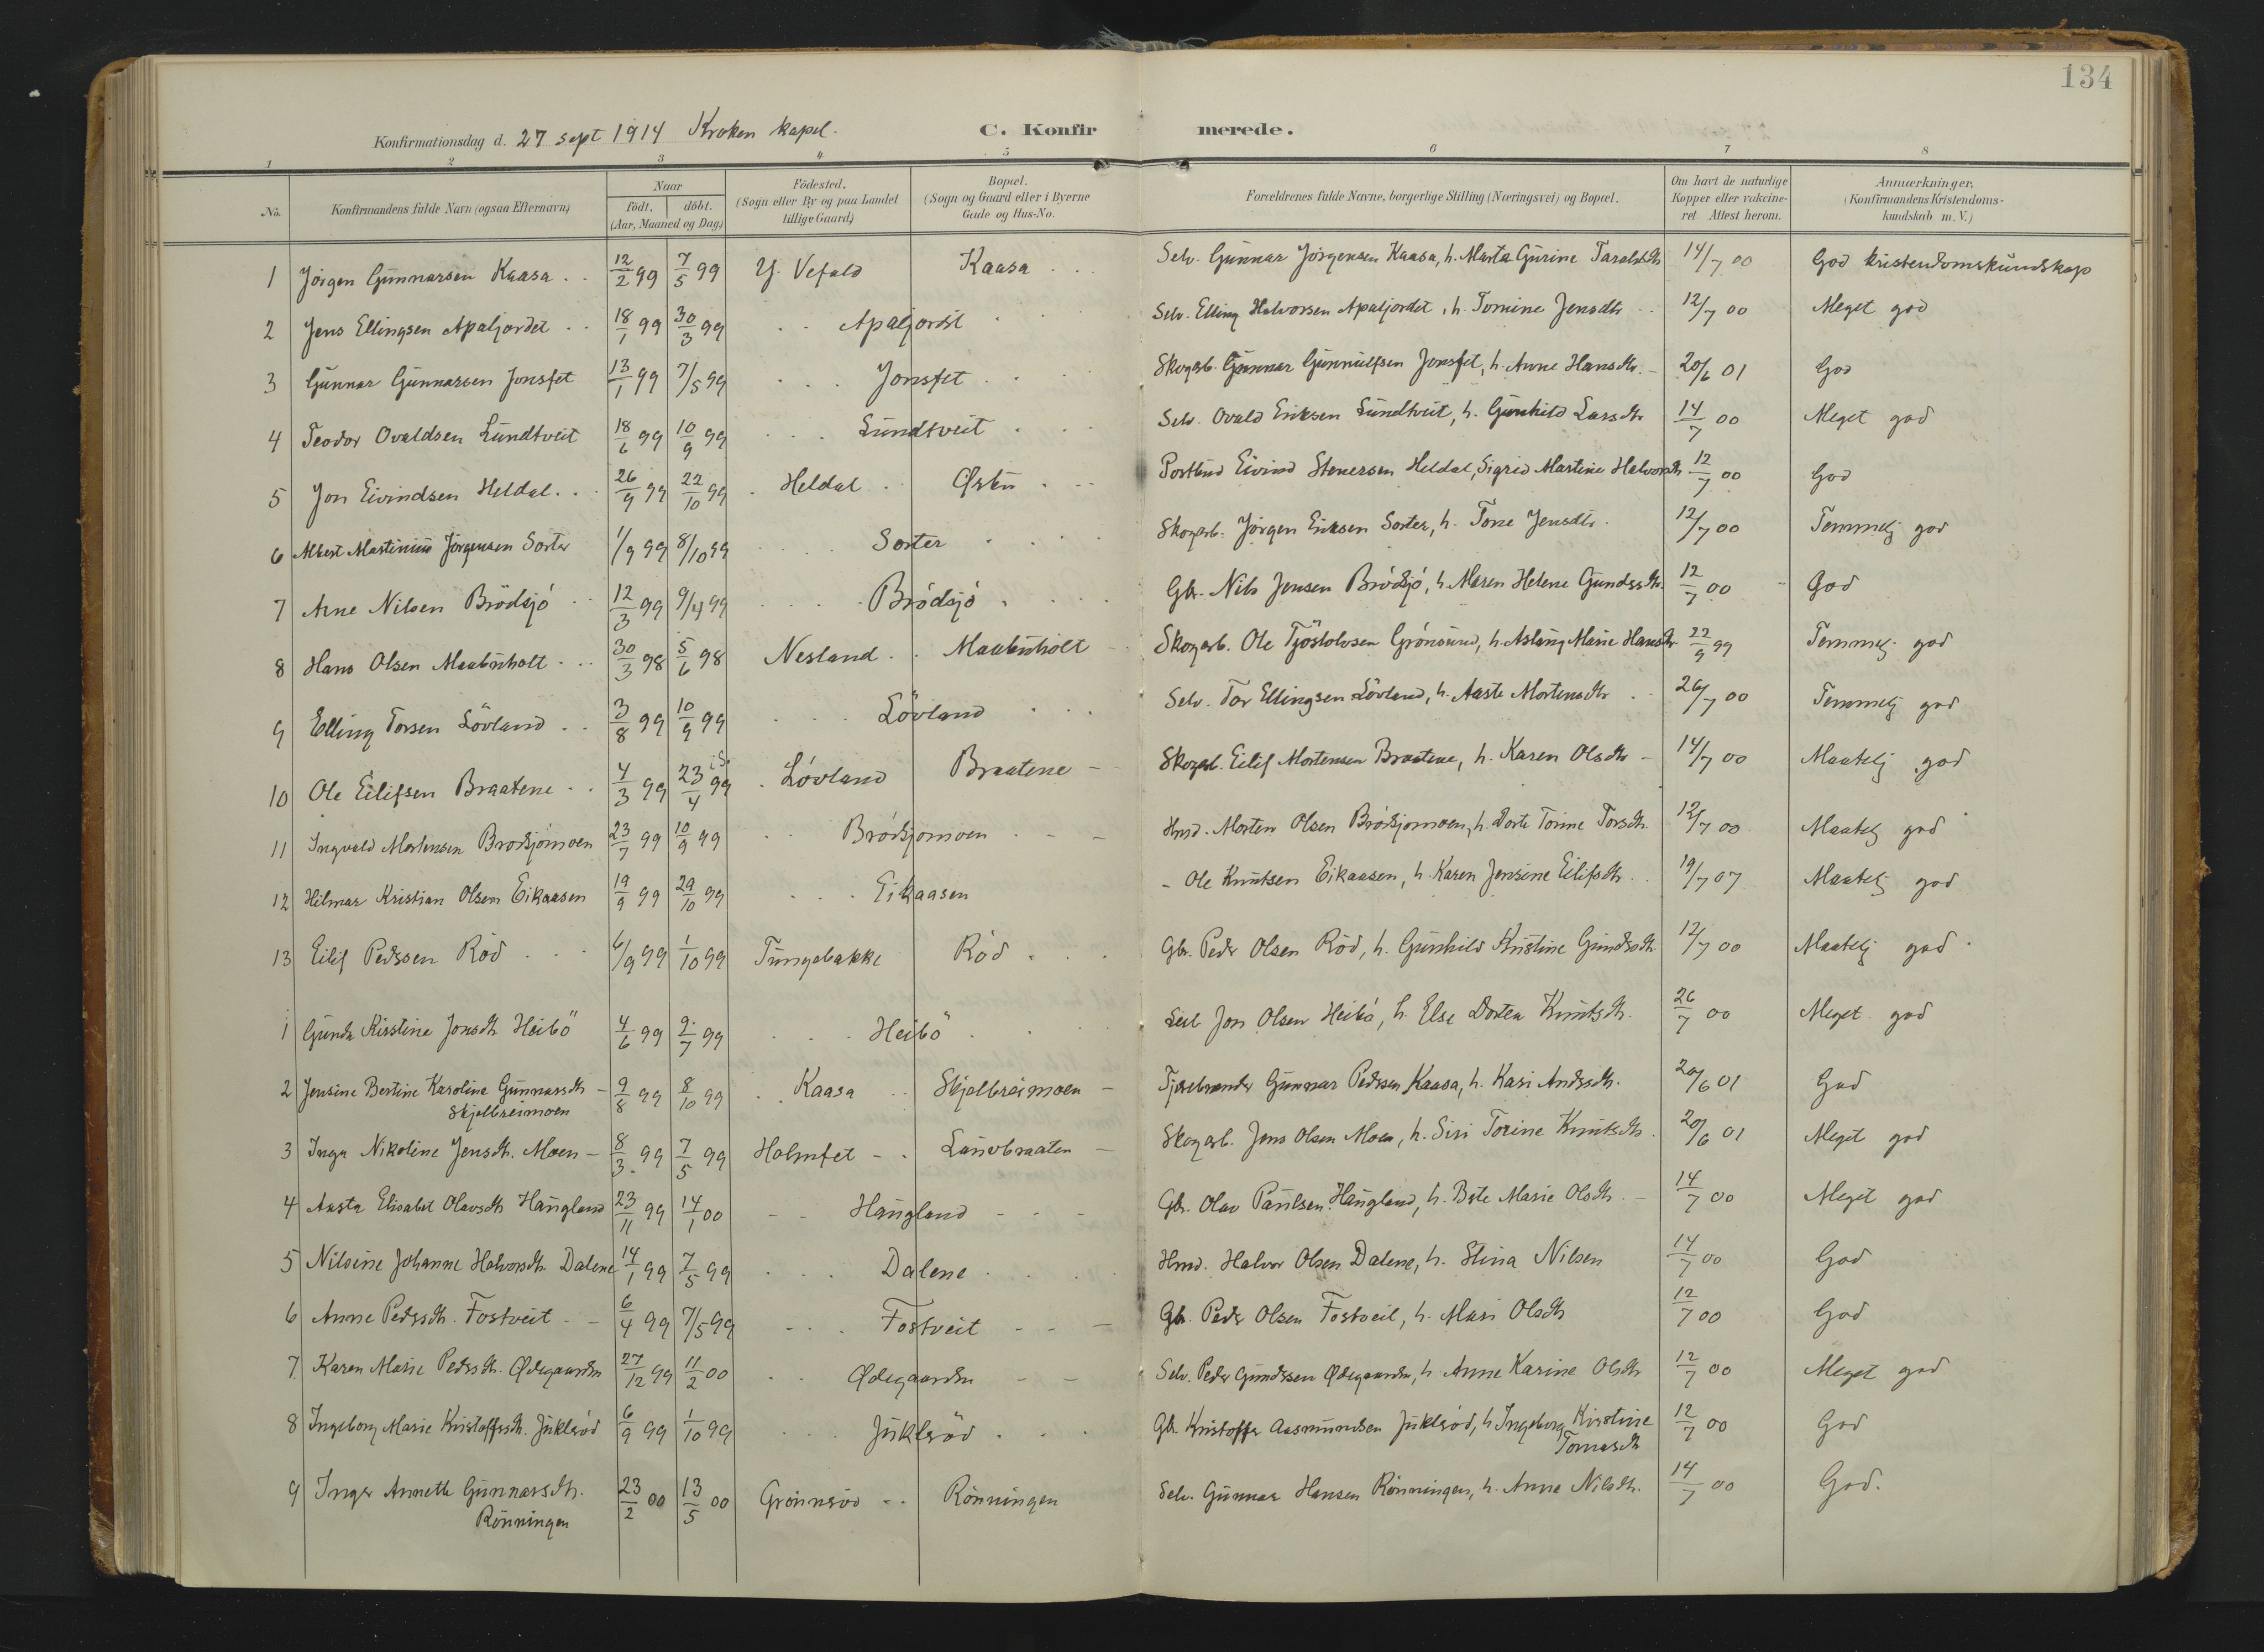 134
Konfirmationsdag d. 27 sept 1914 Kroken kapel. C. Konfirmerede.
1 2 3 4 5 6 7 8
No. Konfirmandens fulde Navn (ogsaa Efternavn) Naar födt. döbt. (Aar, Maaned og Dag) Födested. (Sogn eller By og paa Landet tillige Gaard) Bopæl. (Sogn og Gaard eller i Byerne Gade og Hus-No. Forældrenes fulde Navne, borgerlige Stilling (Næringsvei) og Bopæl. Om havt de naturlige Kopper eller vakcineret Attest herom. Anmærkninger, (Konfirmandens Kristendomskundskab m. V.)
1 Jörgen Gunnarsen Kaasa . . 12/2 99 7/5 99 Y. Vefald Kaasa . . . Selv. Gunnar Jörgensen Kaasa, h. Marta Gurine Taraldsdtr 14/7 00 God kristendomskundskap
2 Jens Ellingsen Apaljordet . . 18/1 99 30/3 99 . . Apaljordet . . Selv. Elling Halvorsen Apaljordet, h. Tomine Jensdtr 12/7 00 Meget god
3 Gunnar Gunnarsen Jonsfet 13/1 99 7/5 99 . . . Jonsfet . . . Skogarb. Gunnar Gunnulfsen Jonsfet, h. Anne Hansdtr. 20/6 01 God
4 Teodor Ovaldsen Lundtveit 18/6 99 10/9 99 . . . Lundtveit . . . Selv. Ovald Eriksen Lundtveit, h. Gunhild Larsdtr 14/7 00 Meget god
5 Jon Eivindsen Heldal . . 26/9 99 22/10 99 . Heldal . . Østen . -- Postbud Eivind Stenersen Heldal, Sigrid Martine Halvorsdtr 12/7 00 God
6 Albert Martinius Jörgensen Sorter 1/9 99 8/10 99 . . . . Sorter . . . . Skogarb. Jörgen Eriksen Sorter, h. Tone Jensdtr. 12/7 00 Temmelig god
7 Arne Nilsen Brödsjö . . 12/3 99 9/4 99 . . . . Brödsjö . . . . Gbr. Nils Jensen Brödsjö, h. Maren Helene Gunderssdtr. 12/7 00 God
8 Hans Olsen Maabuholt . . . 30/3 98 5/6 98 Nesland . . Maabuholt - Skogarb. Ole Tjöstolvsen Grönsund, h. Aslaug Marie Hansdtr 22/9 99 Temmelig god
9 Elling Torsen Lövland . . 3/8 99 10/9 99 . . . Lövland . . . Selv. Tor Ellingsen Lövland, h. Aaste Mortensdtr . . 26/7 00 Temmelig god
10 Ole Eilifsen Braatene . . 4/3 99 23/4 99 . Lövland Braatene - Skogarb. Eilif Mortensen Braatene, h. Karen Olsdtr - 14/7 00 Maatelig god
11 Ingvald Mortensen Brodsjomoen 23/7 99 10/9 99 . . Brödsjomoen . - - Hmd. Morten Olsen Brödsjomoen, h. Dorte Tonine Torsdtr. 12/7 00 Maatelig god
12 Hilmar Kristian Olsen Eikaasen 19/9 99 29/10 99 . . . Eikaasen - Ole Knutsen Eikaasen, h. Karen Jensine Eilifsdtr . . 19/7 07 Maatelig god
13 Eilif Pedersen Röd . . . 6/9 99 1/10 99 Tungebakke Röd . . . Gbr. Peder Olsen Röd, h. Gunhild Kristine Gundersdtr. 12/7 00 Maatelig god
1 Gunda Kirstine Jonsdtr Heibö 4/6 99 9/7 99 . . . Heibö . . . Selv Jon Olsen Heibö, h. Else Dortea Knutsdtr. 26/7 00 Meget god
2 Jensine Bertine Karoline Gunnarsdtr - 9/8 99 8/10 99 . . Kaasa . . Skjelbreimoen - Tjærebrænder Gunnar Pedersen Kaasa, h. Kari Andersdtr. 20/6 01 God
Skjelbreimoen
3 Inga Nikoline Jensdtr. Moen - 8/3 99 7/5 99 Holmfet - . Lauvbraaten - Skogarb. Jens Olsen Moen, h. Siri Torine Knutsdtr. 20/6 01 Meget god
4 Aasta Elisabet Olavsdtr Haugland 23/11 99 14/1 00 - - Haugland - - - Gbr. Olav Paulsen Haugland, h. Berte Marie Olsdtr. - 14/7 00 Meget god
5 Nilsine Johanne Halvorsdtr. Dalene 14/1 99 7/5 99 . . . Dalene . . . . Hmd. Halvor Olsen Dalene, h. Stina Nilsen 14/7 00 God
6 Anne Pedersdtr. Fostveit - - 6/4 99 7/5 99 - - . Fostveit - - - Gbr. Peder Olsen Fostveit, h. Mari Olsdtr 12/7 00 God
7. Karen Marie Pedersdtr. Ødegaarden 27/12 99 11/2 00 . . Ødegaarden - - Selv. Peder Gundersen Ødegaarden, h. Anne Karine Olsdtr 12/7 00 Meget god
8 Ingeborg Marie Kristoffersdtr. Juklerød 6/9 99 1/10 99 . . . Juklerød . . . Gbr. Kristoffer Aasmundsen Juklerød, h Ingeborg Kirstine 12/7 00 God
Tomasdtr
9 Inger Annette Gunnarsdtr. 23/2 00 13/5 00 Grönnerød - . Rönningen Selv. Gunnar Hansen Rönningen, h. Anne Nilsdtr. 14/7 00 God.
Rönningen